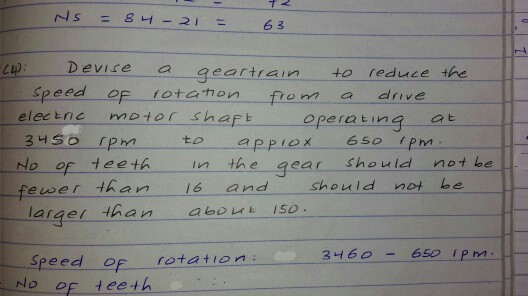 Ns = 84 - 21 = 63
(4): Devise a geartrain to reduce the
speed of rotation from a drive
electric motor shaft operating at
3450 rpm to approx 650 rpm.
No of teeth in the gear should not be
fewer than 16 and should not be
larger than about 150.
Speed of rotation: 3460 - 650 rpm.
No of teeth